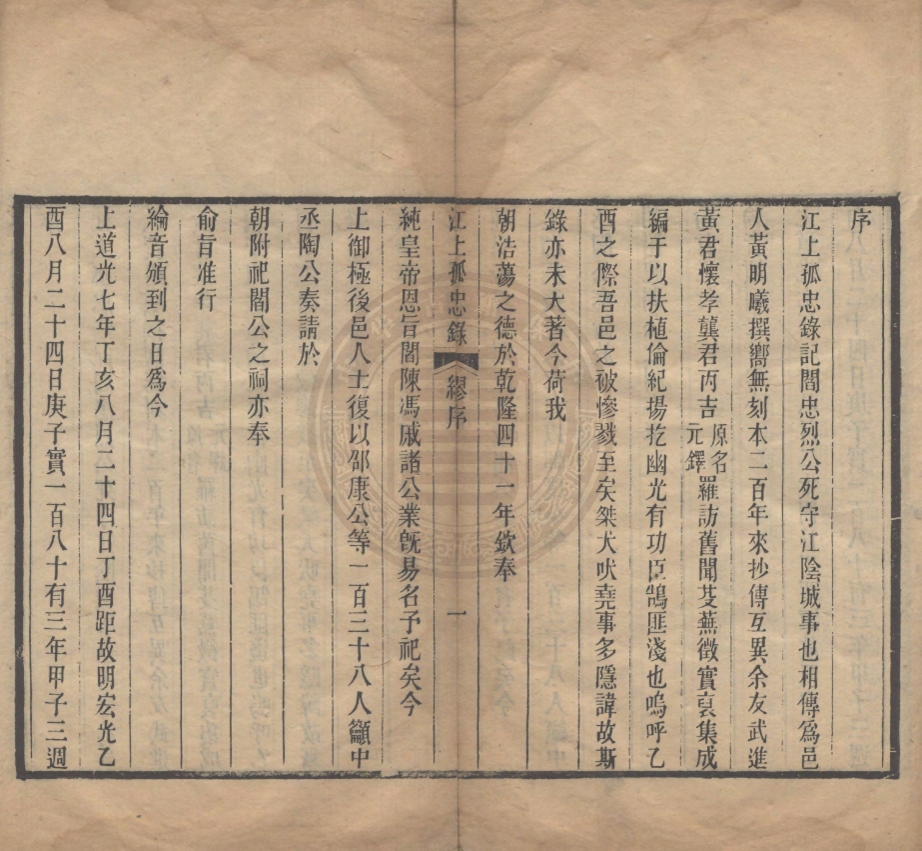 序
江上孤忠錄記閻忠烈公死守江陰城事也相傳爲邑
人黃明曦撰嚮無刻本二百年來抄傳互異余友武進
黃君懷孝龔君丙吉原名元鐸羅訪舊聞芟蕪徵實裒集成
編于以扶植倫紀揚扢幽光有功臣鵠匪淺也嗚呼乙
酉之際吾邑之被慘戮至矣桀犬吠堯事多隱諱故斯
錄亦未大著今荷我
朝浩蕩之德於乾隆四十一年欽奉
江上孤忠錄 繆序 一
純皇帝恩旨閻陳馮戚諸公業旣易名予祀矣今
上御極後邑人士復以邵康公等一百三十八人籲中
丞陶公奏請於
朝附祀閻公之祠亦奉
俞旨准行
綸音頒到之日爲今
上道光七年丁亥八月二十四日丁酉距故明宏光乙
酉八月二十四日庚子實一百八十有三年甲子三週